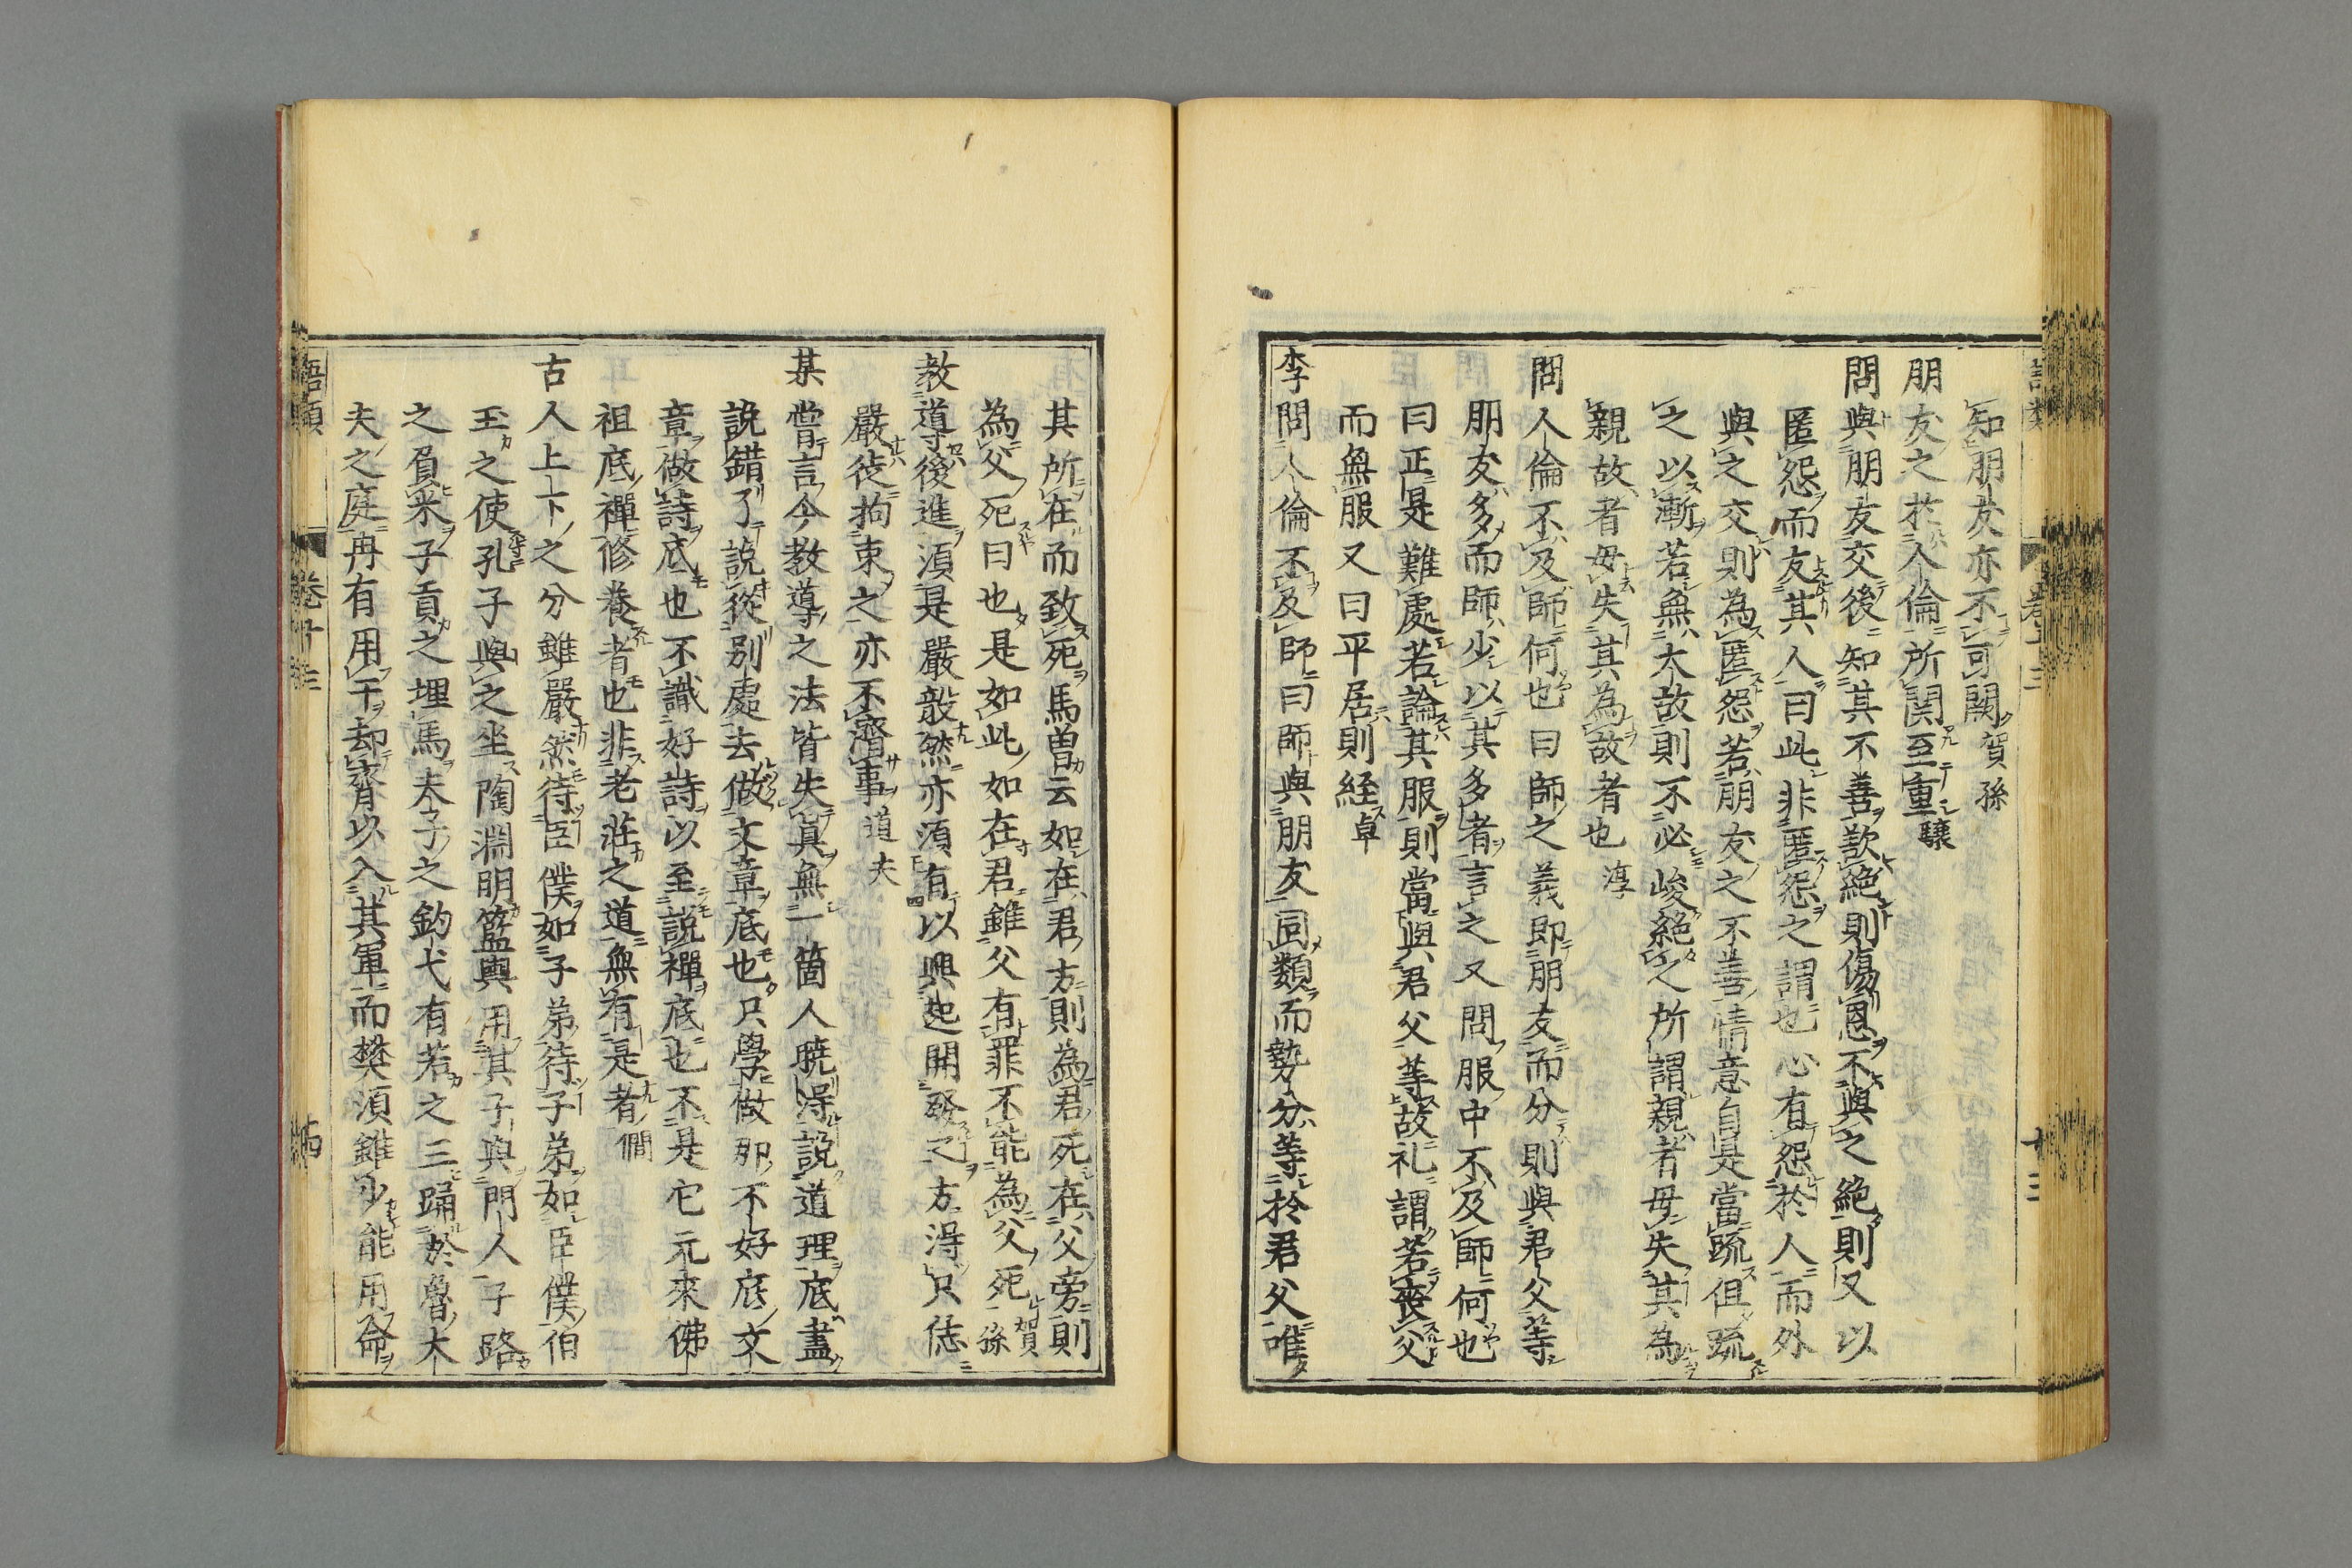 知朋友亦不可闕賀孫
朋友之於人倫所関至重驤
問與朋友交後知其不善欲絶則傷恩不與之絶則又以
匿怨而友其人曰此非匿怨之謂也心有怨於人而外
與之交則為匿怨若朋友之不善情意自是當疏但疏
之以漸若無大故則不必峻絶之所謂親者毋失其為
親故者毋失其為故者也淳
問人倫不及師何也曰師之義即朋友而分則與君父等
朋友多而師少以其多者言之又問服中不及師何也
曰正是難處若論其服則當與君父等故礼謂若喪父
而無服又曰平居則経卓
李問人倫不及師曰師與朋友同類而勢分等於君父唯
其所在而致死焉曽云如在君旁則為君死在父旁則
為父死曰也是如此如在君雖父有罪不能為父死賀孫
教導後進須是嚴毅然亦須有以興起開發之方得只恁
嚴徒拘束之亦不濟事道夫
某嘗言今教導之法皆失真無一箇人曉得說道理底盡
說錯了說從别處去做文章底也只學做那不好底文
章做詩底也不識好詩以至說禪底也不是它元來佛
祖底禪修養者也非老荘之道無有是者僩
古人上下之分雖嚴然待臣僕如子弟待子弟如臣僕伯
玉之使孔子與之坐陶淵明籃輿用其子與門人子路
之負米子貢之埋馬夫子之釣弋有若之三踊於魯大
夫之庭冉有用干却齊以入其軍而樊須雖少能用命
語類 卷十三